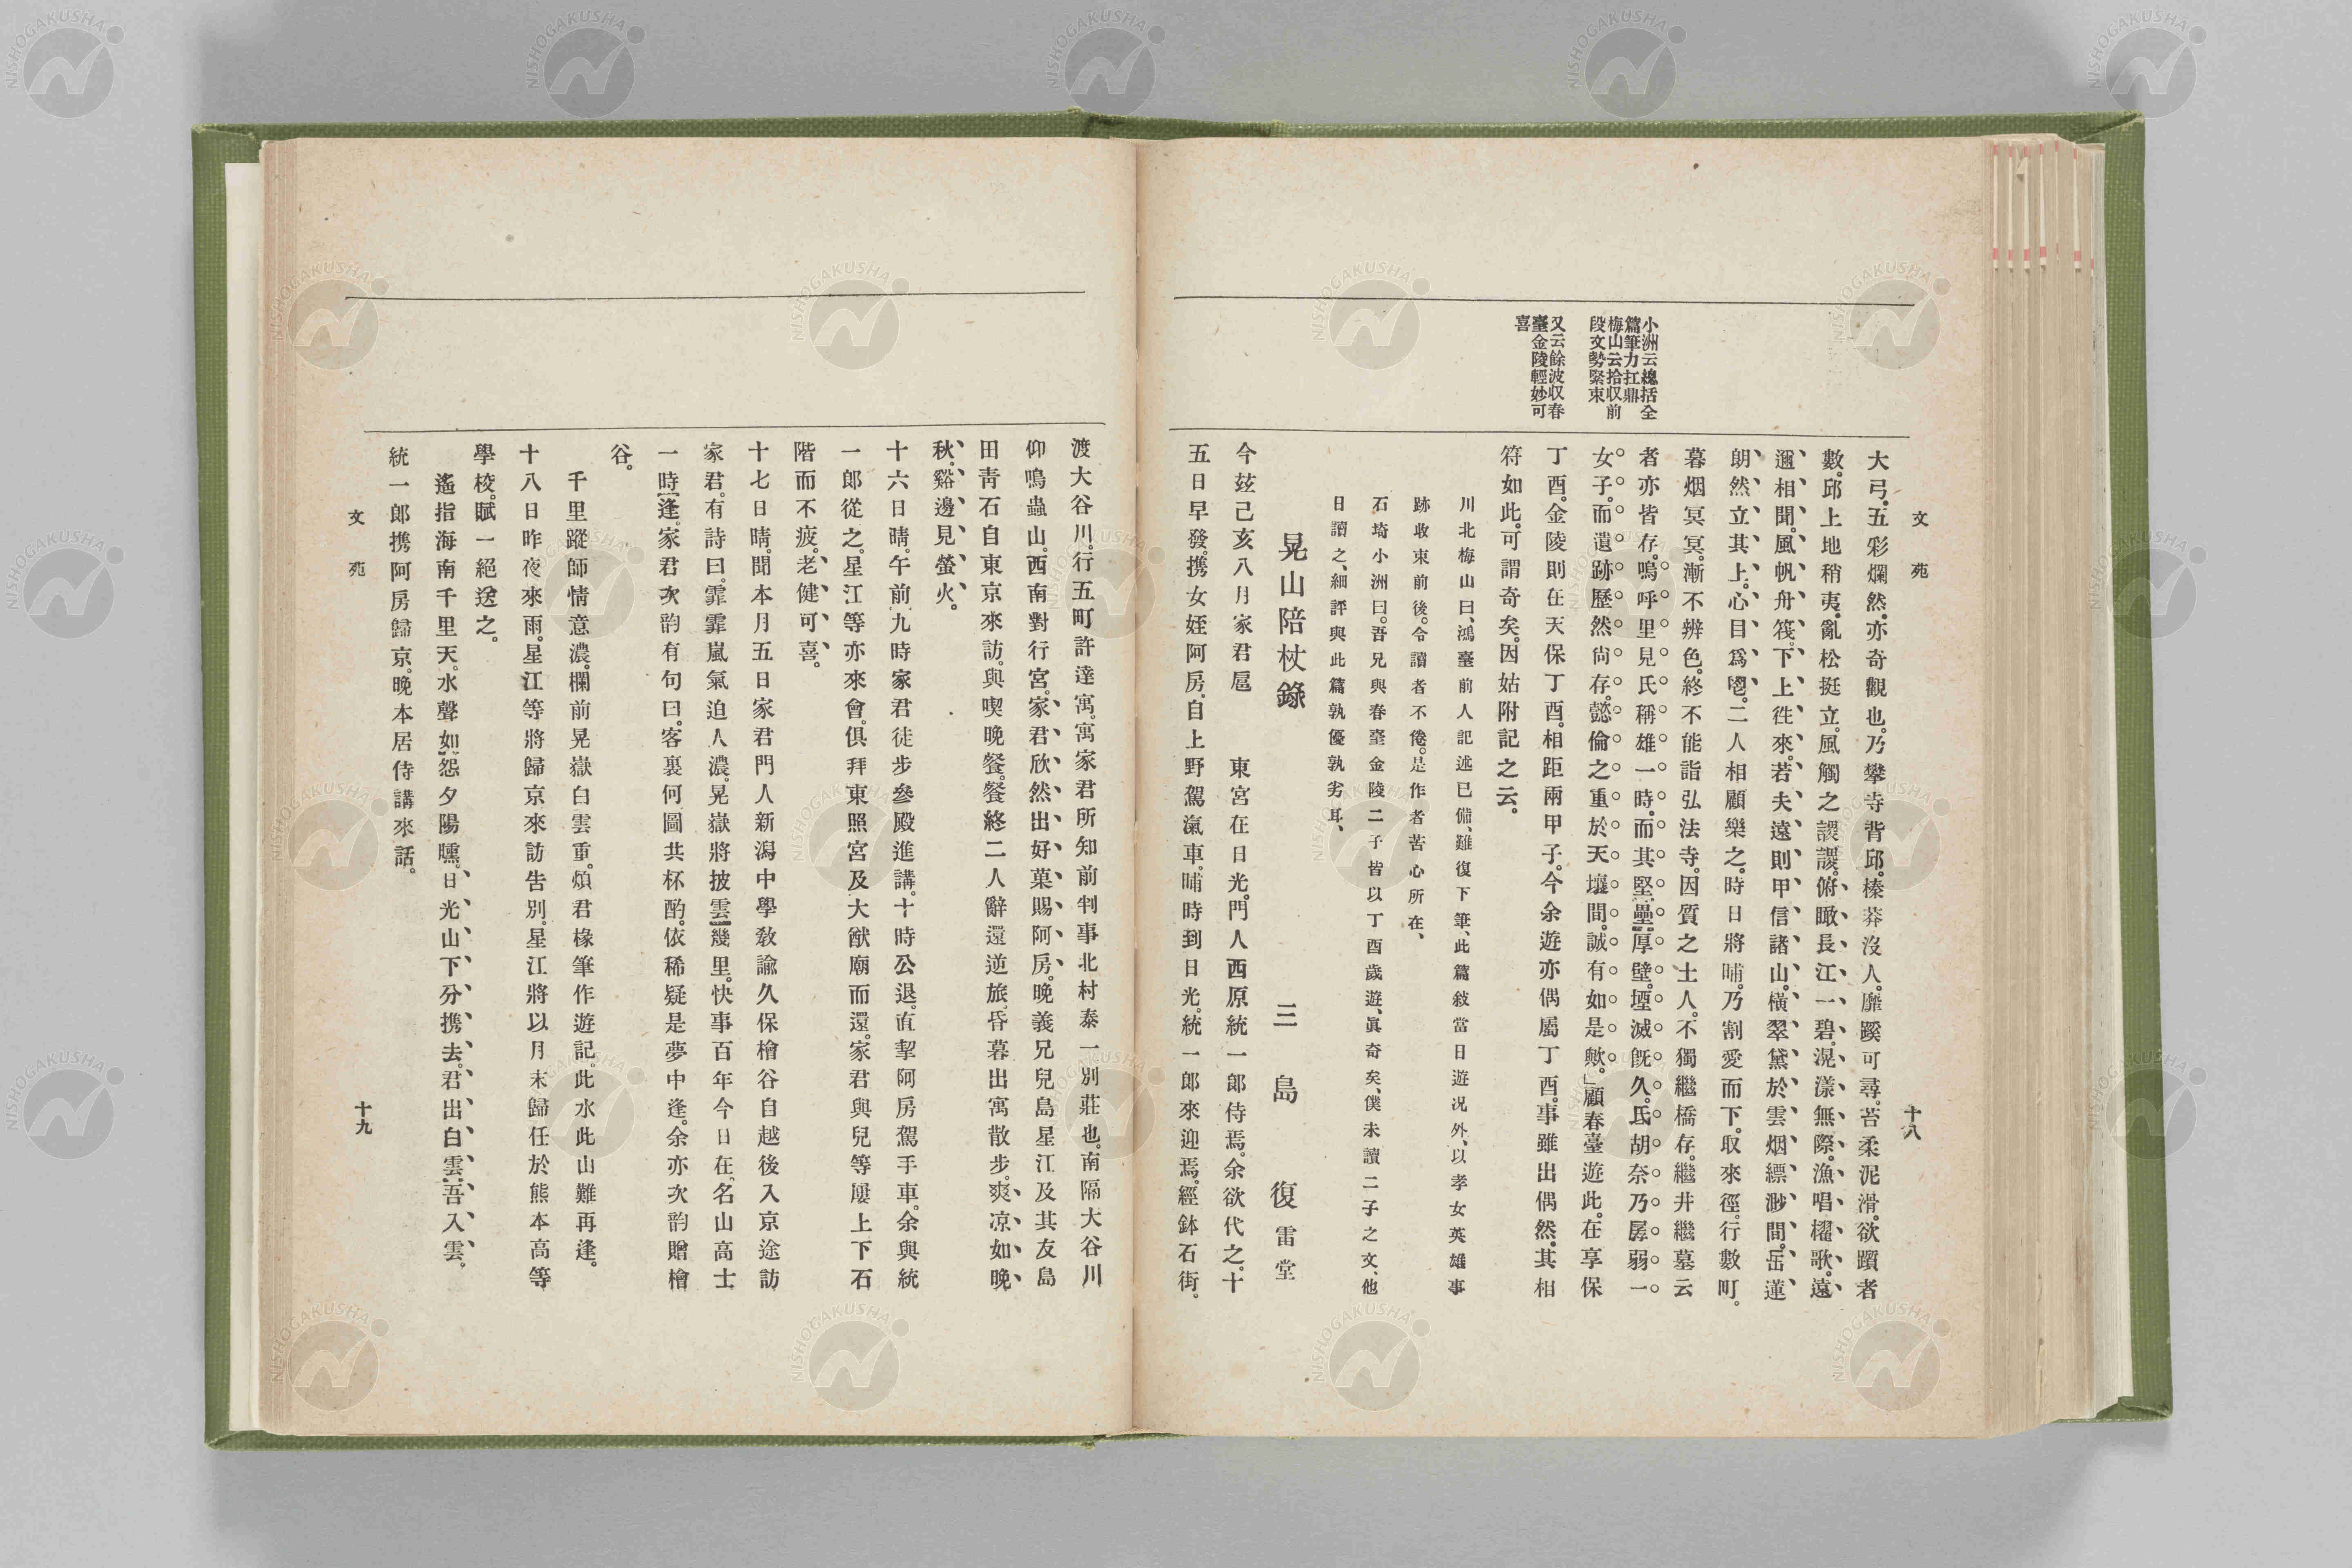 文苑
十八
小洲云總括全
篇筆力扛鼎
梅山云拾収前
段文勢緊束
又云餘波収春
臺金陵輕妙可
喜
大弓。五彩爛然。亦奇觀也。乃攀寺背邱。榛莽沒人。靡蹊可尋。苔柔泥滑。欲躓者
數。邱上地稍夷。亂松挺立。風觸之謖謖。俯瞰長江一碧。滉漾無際。漁唱櫂歌。遠
邇相聞。風帆舟筏。下上徃來。若夫遠則甲信諸山。橫翠黛於雲烟縹渺間。岳蓮
朗然立其上。心目爲曠。二人相顧樂之。時日將晡。乃割愛而下。取來徑。行數町。
暮烟冥冥。漸不辨色。終不能詣弘法寺。因質之土人。不獨繼橋存。繼井繼墓云
者亦皆存。嗚呼里見氏稱雄一時。而其堅壘厚壁。堙滅旣久。氐胡奈乃孱弱一
女子。而遺跡歷然尙存。懿倫之重於天壤間。誠有如是歟。」顧春臺遊此。在享保
丁酉。金陵則在天保丁酉。相距兩甲子。今余遊亦偶屬丁酉。事雖出偶然。其相
符如此。可謂奇矣。因姑附記之云。
川北梅山曰、鴻臺前人記述已備、難復下筆、此篇敍當日遊况外、以孝女英雄事
跡收束前後。令讀者不倦。是作者苦心所在、
石埼小洲曰。吾兄與春臺金陵二子皆以丁酉歲遊、眞奇矣、僕未讀二子之文、他
日讀之、細評與此篇孰優孰劣耳、
晃山陪杖錄　三島　復雷堂
今玆己亥八月家君扈　東宮在日光。門人西原統一郎侍焉。余欲代之。十
五日早發。携女姪阿房。自上野駕滊車。晡時到日光。統一郎來迎焉。經鉢石街。
渡大谷川。行五町許達寓。寓家君所知前判事北村泰一別莊也。南隔大谷川
仰鳴蟲山。西南對行宮。家君欣然出好菓賜阿房。晚義兄兒島星江及其友島
田靑石自東京來訪。與喫晚餐。餐終二人辭還逆旅。昏暮出寓散步。爽凉如晚
秋。谿邊見螢火。
十六日晴。午前九時家君徒步參殿進講。十時公退。直挈阿房駕手車。余與統
一郎從之。星江等亦來會。俱拜東照宮及大猷廟而還。家君與兒等屢上下石
階而不疲。老健可喜。
十七日晴。聞本月五日家君門人新潟中學敎諭久保檜谷自越後入京途訪
家君。有詩曰。霏霏嵐氣迫人濃。晃嶽將披雲幾里。快事百年今日在。名山高士
一時逢。家君次韵有句曰。客裏何圖共杯酌。依稀疑是夢中逢。余亦次韵贈檜
谷。
千里蹤師情意濃。欄前晃嶽白雲重。煩君椽筆作遊記。此水此山難再逢。
十八日昨夜來雨。星江等將歸京來訪告別。星江將以月末歸任於熊本高等
學校。賦一絕送之。
遙指海南千里天。水聲如怨夕陽曛。日光山下分携去。君出白雲吾入雲。
統一郎携阿房歸京。晚本居侍講來話。
文苑
十九